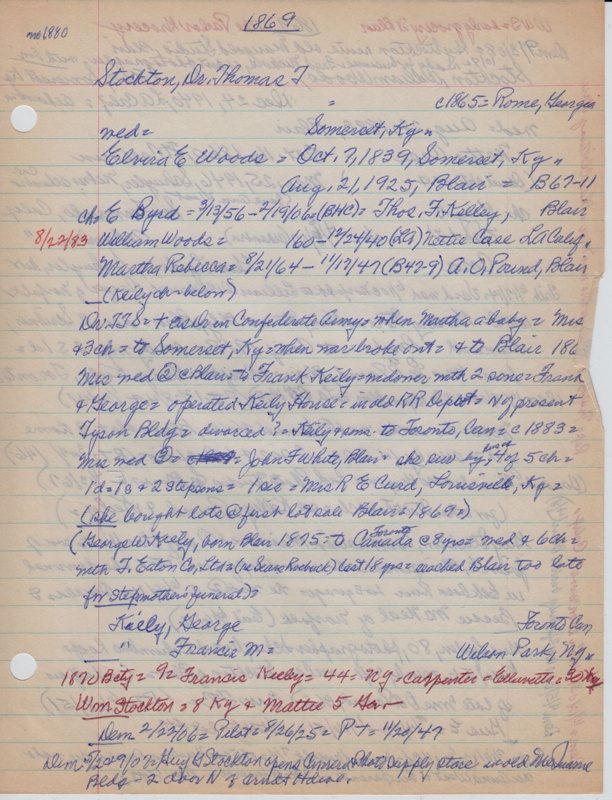 1869
no 1880
Stockton, Dr. Thomas T
= c1865 = Rome, Georgia
med= Somerset, Ky "
Elvira E Woods = Oct. 7, 1839, Somerset, Ky "
Aug. 21, 1925, Blair = B67-11
ch= E Byrd = 9/13/56 - 2/19/06 = (BHC) = Thos. F. Kelley, Blair
8/22/83 William Woods = 160 - 12/24/40 (LA) Nettie Case LA Calif.
Martha Rebecca = 8/21/64 - 11/17/47 (B47-9) A. O. Pound, Blair
(Keily ch = below)
Dr. T T S = + as Dr in Confederate Army = when Martha a baby = Mrs
& 3 ch = to Somerset, Ky = when war broke out = & to Blair 186
Mrs med @ c Blair = to Frank Keily = widower with 2 sons = Frank
& George = operated Keily House = in old RR Depot = N of present
Tyson Bldg = divorced? = Keily & sons to Toronto, Can = c 1883 =
Mrs med @ = John F White, Blair = she surv by 4 of 5 ch =
1 d = 1 s & 2 stepsons = 1 sis = Mrs R E Curd, Louisville, Ky =
(she bought lots @ first lot sale Blair = 1869 =)
(George W Keely, born Blair 1875 = to Toronto Canada c 8 yrs = med & 6 ch =
with T. Eaton Co, Ltd = (as Sears Roebuck) last 18 yrs = reached Blair too late
for stepmother's funeral) =
Keily, George Toronto Can
" Francis M = Wilson Park, Ny "
1870 Francis Keily = 44 = Ny - Carpenter =
Wm Stockton = 8 Ky & Mattie 5
Dem 2/22/06 = Pilot = 8/26/25 = P T = 11/20/47
Stockton opens Camera & Photo supply store in old
Bldg = 2 door N of